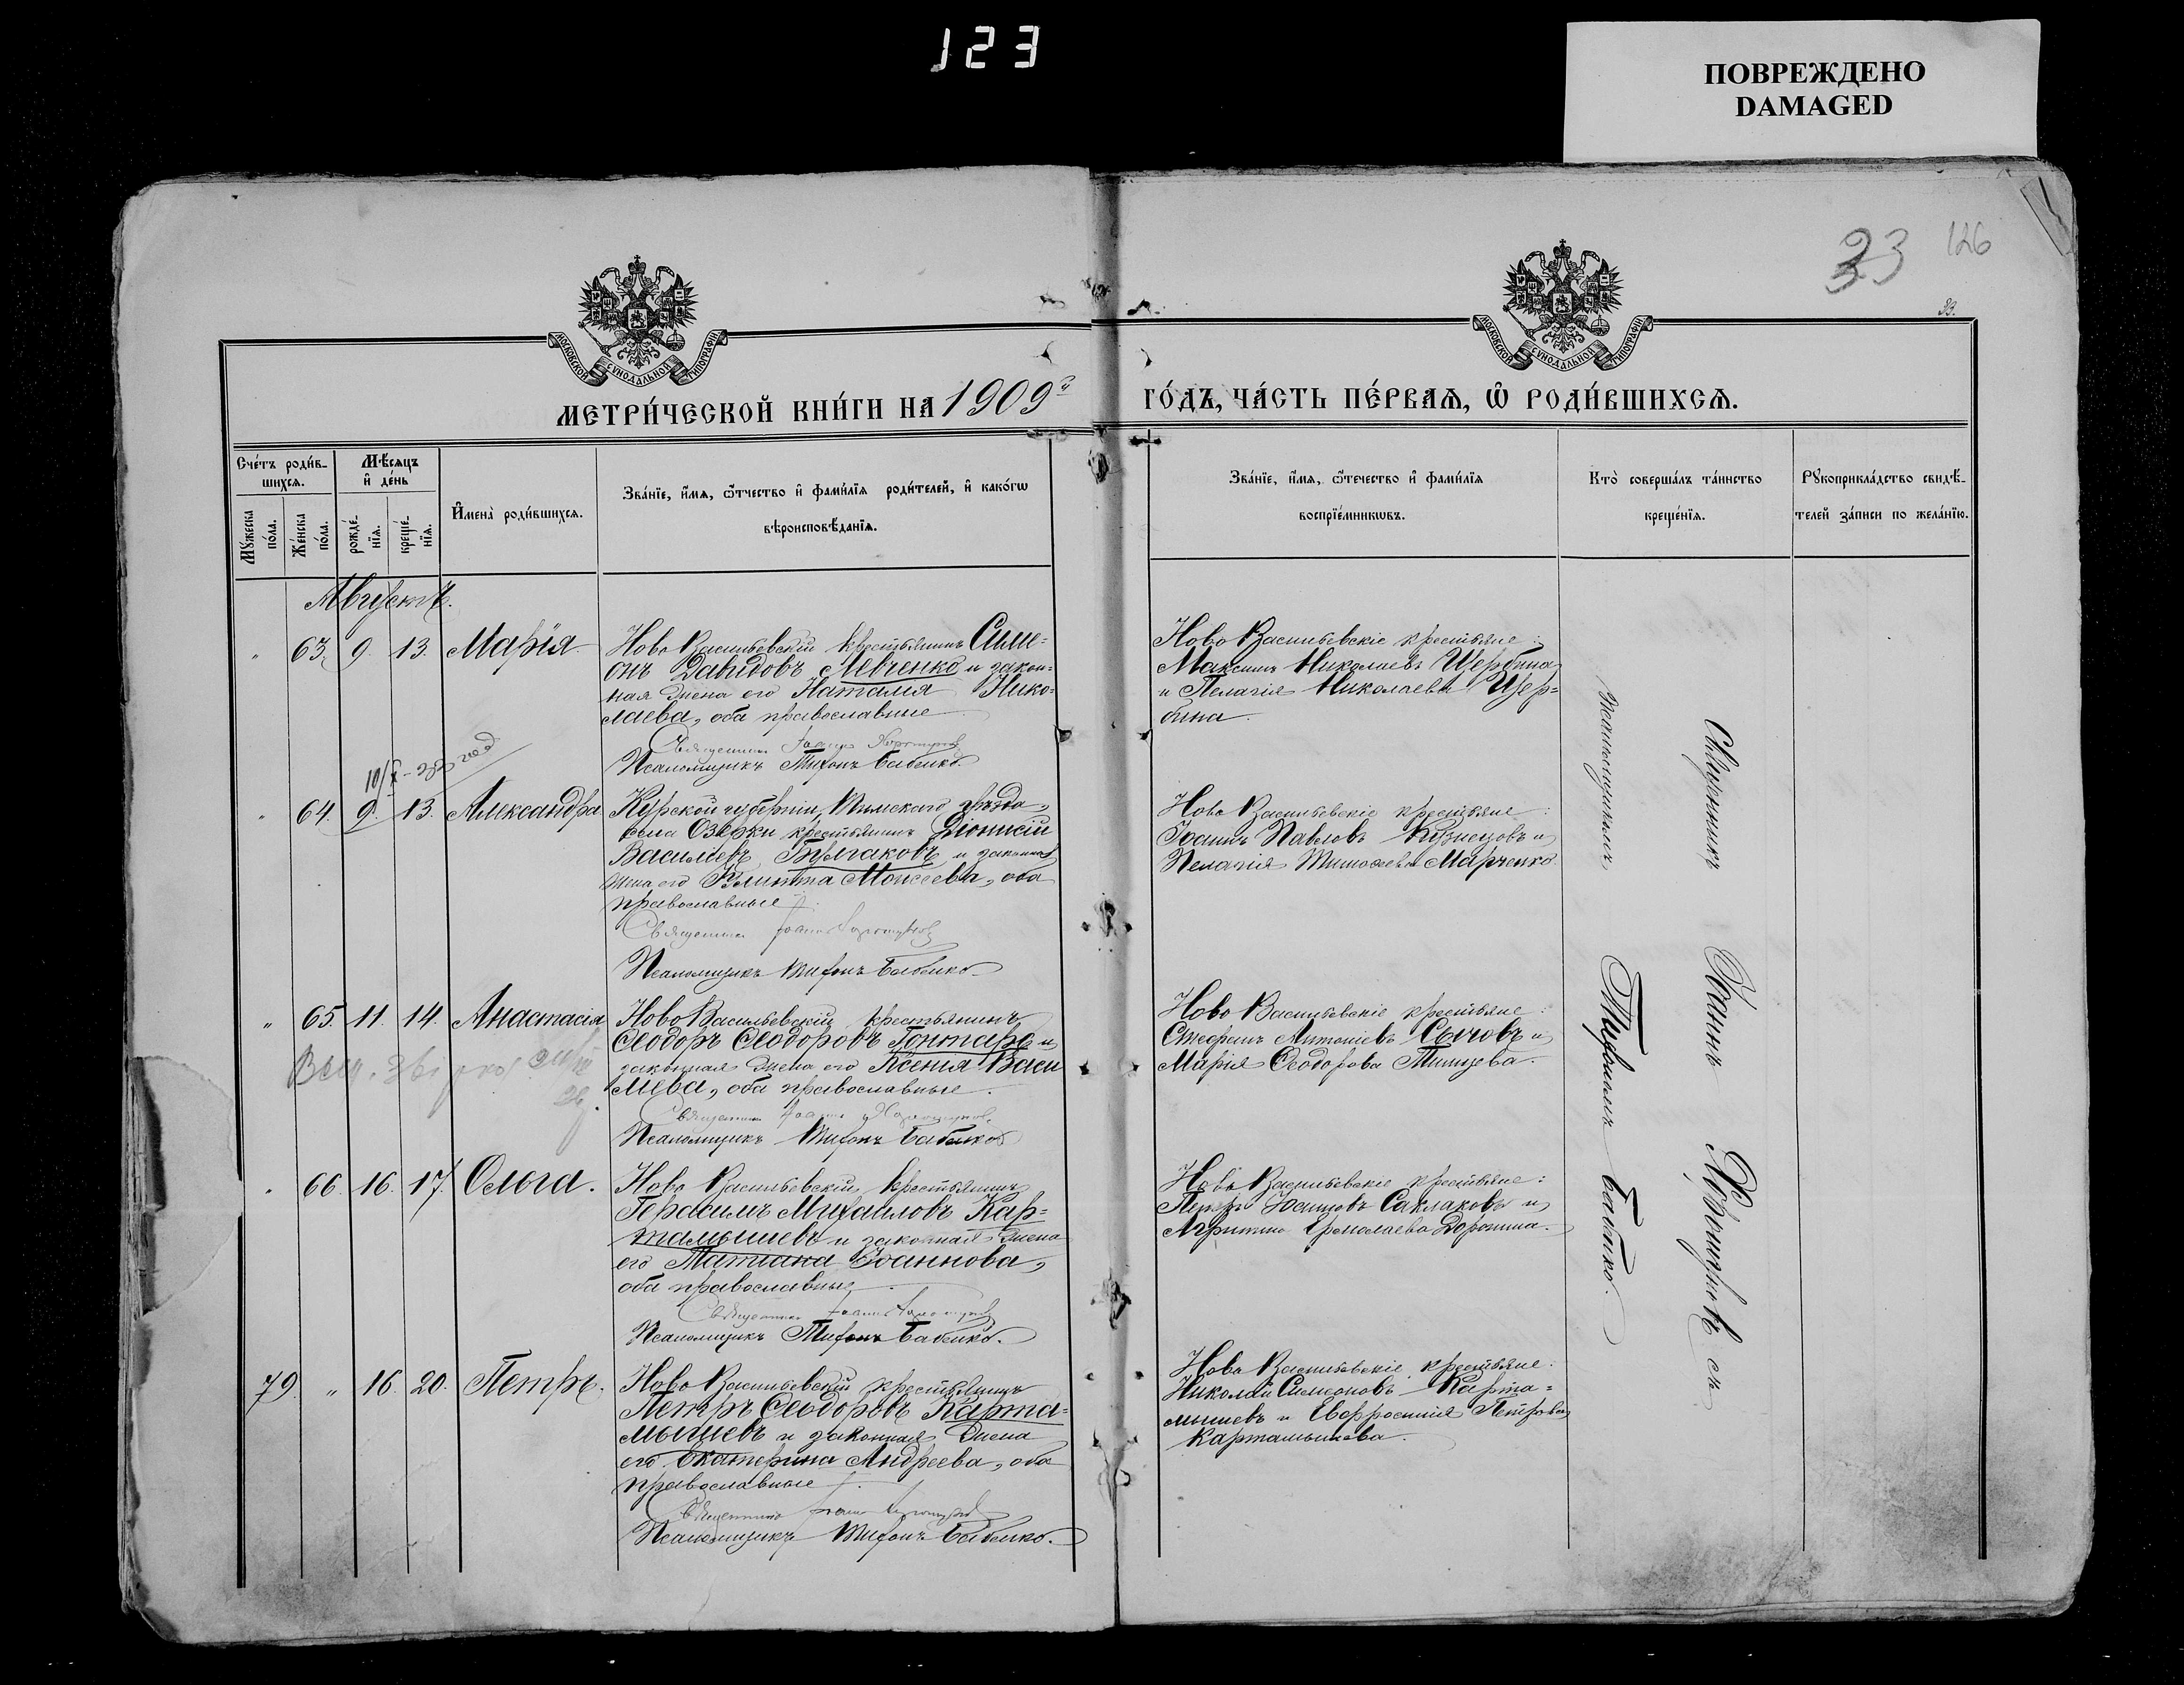 123
ПОВРЕЖДЕНО
DAMAGED
33
126
33.
МОСКОВСКОЙ СѴНОДАЛЬНОЙ ТИПОГРАФІИ
МОСКОВСКОЙ СѴНОДАЛЬНОЙ ТИПОГРАФІИ
МЕТРИ́ЧЕСКОЙ КНИ́ГИ НА 1909й
ГО́ДЪ, ЧА́СТЬ ПЕ́РВАѦ, Ѽ РОДИ́ВШИХСѦ.
Сче́тъ роди́в-
шихсѧ.
Мѣ́сѧцъ
и҆ де́нь
Мꙋ́жеска
по́ла.
Же́нска
по́ла.
рожде́-
нїѧ.
креще́-
нїѧ.
И҆мена̀ роди́вшихсѧ.
Зва́нїе, и҆́мѧ, ѻ҆́тчество и҆ фами́лїѧ роди́телей, и҆ како́гѡ
вѣроисповѣ́данїѧ.
Зва́нїе, и҆́мѧ, ѻ҆́течество и҆ фами́лїѧ
воспрїе́мникѡвъ.
Кто̀ соверша́лъ та́инство
креще́нїѧ.
Рꙋкоприкла́дство свидѣ́-
телей за́писи по жела́нїю.
Августъ.
" 63. 9. 13. Марія
Ново Васильевскій крестьянинъ Симе=
онъ Давидовъ Левченко и закон=
ная жена его Наталія Нико=
лаева, оба православные
Священникъ Іоаннъ Хорошуновъ
Псаломщикъ Тихонъ Бабенко.
Ново Васильевскіе крестьяне:
Максимъ Николаевъ Щербина
и Пелагія Николаева Щер=
бина.
" 64. 9. 13. Александра
Курской губерніи, Тимскаго уѣзда,
села Озерки крестьянинъ Діонисій
Васильевъ Булгаковъ и законная
жена его Моисеева, оба
православные.
Священникъ Іоаннъ Хорошуновъ
Псаломщикъ Тихонъ Бабенко
Ново Васильевскіе крестьяне:
Іоаннъ Павловъ Кузнецовъ и
Пелагія Тимоѳеева Марченко
" 65. 11. 14. Анастасія
Ново Васильевскій крестьянинъ
Ѳеодоръ Ѳеодоровъ Гонтарь и
законная жена его Ксенія Васи
льева, оба православные.
Священникъ Іоаннъ Хорошуновъ
Псаломщикъ Тихонъ Бабенко
Ново Васильевскіе крестьяне:
Стефанъ Антоніевъ Сычовъ и
Марія Ѳеодорова
" 66. 16. 17. Ольга.
Ново Васильевскій крестьянинъ
Герасимъ Михаиловъ Кар=
тамышевъ и законная жена
его Татіана Іоаннова,
оба православные
Священникъ Іоаннъ Хорошуновъ
Псаломщикъ Тихонъ Бабенко.
Ново Васильевскіе крестьяне:
Петръ Іоанновъ Саклаковъ и
Ермолаева Доронина.
79. " 16. 20. Петръ.
Ново Васильевскій крестьянинъ
Петръ Ѳеодоровъ Карта=
мышевъ и законная жена
его Екатерина Андреева, оба
православные.
Священникъ Іоаннъ Хорошуновъ
Псаломщикъ Тихонъ Бабенко.
Ново Васильевскіе крестьяне:
Николай Симеоновъ Карта=
мышевъ и Евфросинія Петрова
Картамышева.
Священникъ Іоаннъ Хорошуновъ съ
псаломщикомъ Тихономъ Бабенко.